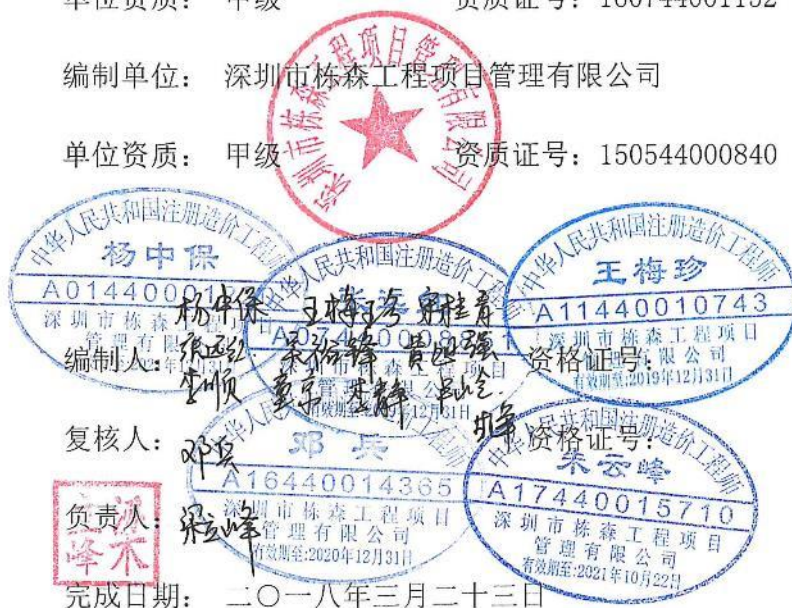 单位资质： 甲级 资质证号：160744001152
编制单位： 深圳市栋森工程项目管理有限公司
深圳市栋森工程项目管理有限公司
单位资质： 甲级 资质证号：150544000840
中华人民共和国注册造价工程师
杨中保
A01440001
深圳市栋森工程项目
管理有限公司
中华人民共和国注册造价工程师
A07440008
深圳市栋森工程项目
管理有限公司
有效期至: 12月31日
中华人民共和国注册造价工程师
王梅珍
A11440010743
深圳市栋森工程项目
管理有限公司
有效期至:2019年12月31日
杨中保 王梅珍
编制人： 吴裕锋 资格证号：
李顺 童京 李静
复核人： 邓兵 资格证号：
中华人民共和国注册造价工程师
邓兵
A16440014365
深圳市栋森工程项目
管理有限公司
有效期至:2020年12月31日
中华人民共和国注册造价工程师
朱云峰
A17440015710
深圳市栋森工程项目
管理有限公司
有效期至:2021年10月22日
负责人： 梁立峰
完成日期： 二〇一八年三月二十三日